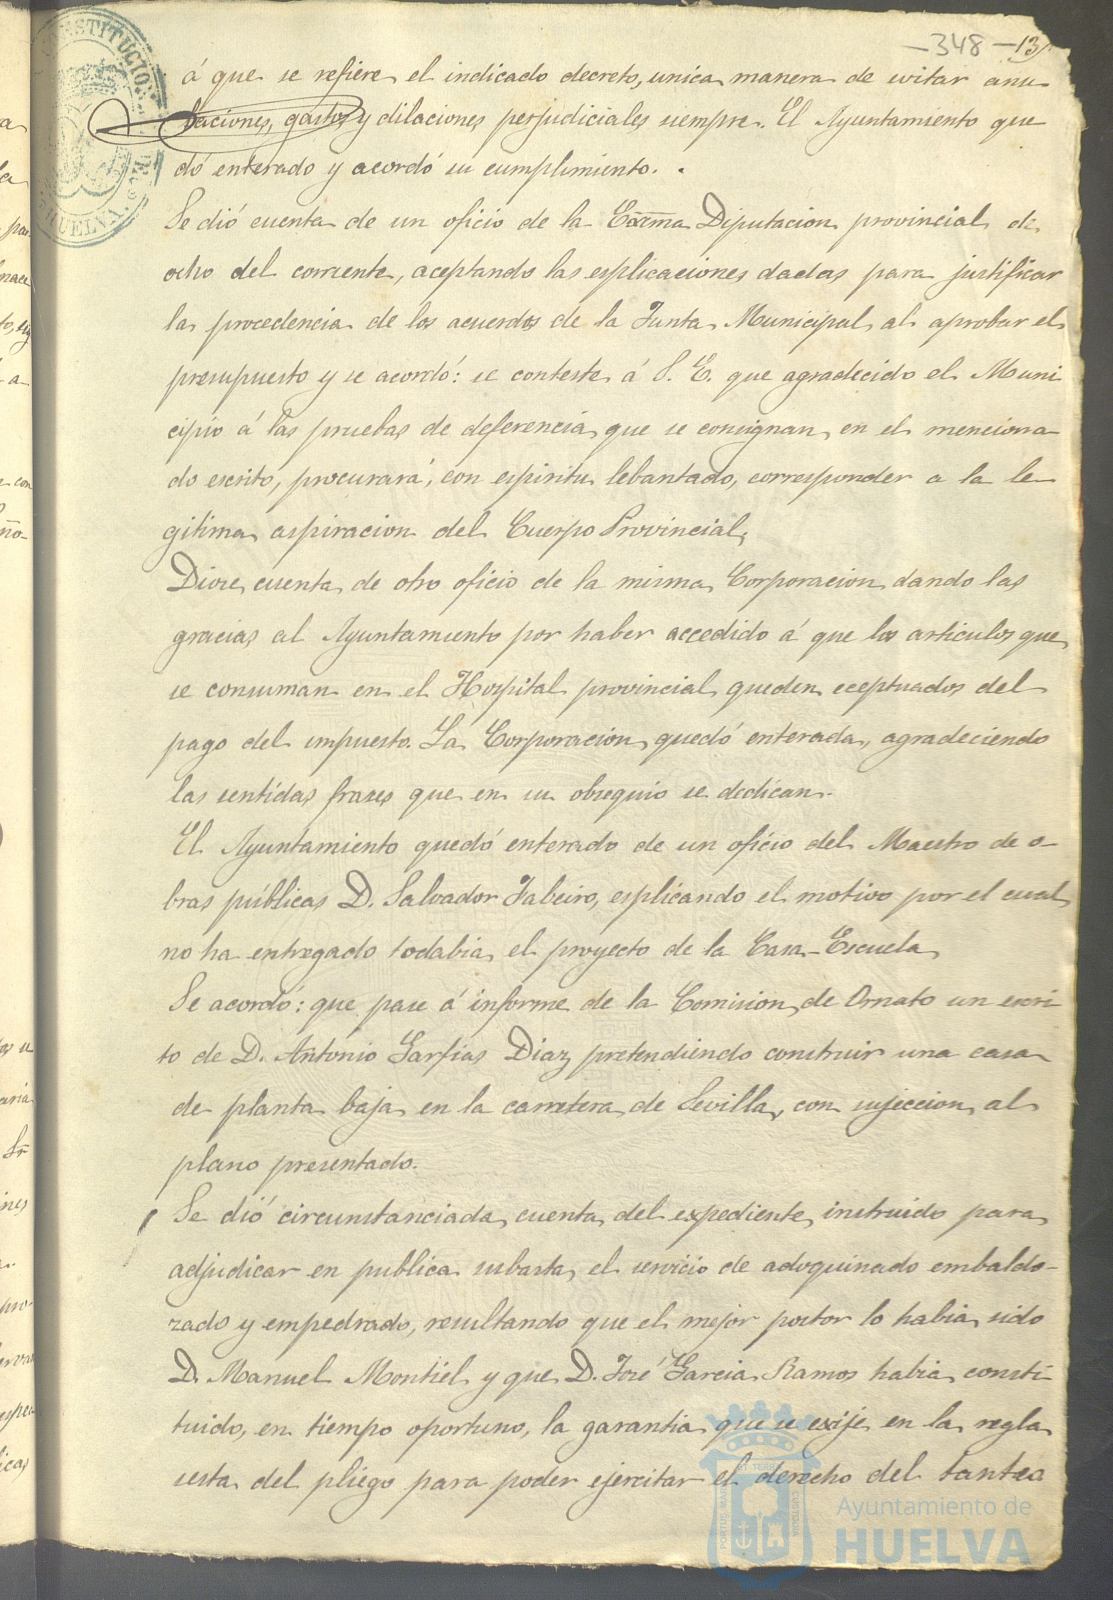 -348- 13
á que se refiere el indicado decreto, unica manera de evitar anu
laciones, gastos y dilaciones perjudiciales siempre. El Ayuntamiento que
dó enterado y acordó su cumplimiento.
Se dió cuenta de un oficio de la Excma Diputacion provincial de
ocho del corriente, aceptando las esplicaciones dadas para justificar
la procedencia de los acuerdos de la Junta Municipal al aprobar el
presupuesto y se acordó: se conteste á S. E. que agradecido el Muni
cipio á las pruebas de deferencia que se consignan en el menciona
do escrito, procurará, con espiritu lebantado, corresponder a la le
gitima aspiracion del Cuerpo Provincial.
Diose cuenta de otro oficio de la misma Corporacion dando las
gracias al Ayuntamiento por haber accedido á que los articulos que
se consuman en el Hospital provincial queden eceptuados del
pago del impuesto. La Corporacion quedó enterada, agradeciendo
las sentidas frases que en su obsequio se dedican.
El Ayuntamiento quedó enterado de un oficio del Maestro de o-
bras públicas D. Salvador Tabeiro, esplicando el motivo por el cual
no ha entregado todabia el proyecto de la Casa-Escuela
Se acordó: que pase á informe de la Comision de Ornato un escri-
to de D. Antonio Garfias Diaz pretendiendo construir una casa
de planta baja en la carretera de Sevilla, con sujeccion al
plano presentado.
Se dió circunstanciada cuenta del expediente instruido para
adjudicar en publica subasta el servicio de adoquinado embaldo-
zado y empedrado, resultando que el mejor postor lo habia sido
D. Manuel Montiel y que D. José Garcia Ramos habia consti-
tuido, en tiempo oportuno, la garantia que se exije en la regla
sesta del pliego para poder ejercitar el derecho del tanteo
Ayuntamiento de
HUELVA